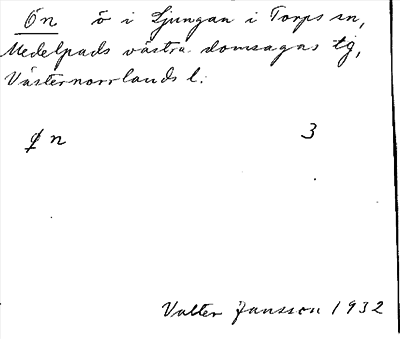 Ön ö i Ljungan i Torps sn,
Medelpads västra domsagas tg,
Västernorrlands l.
ø n 3
Valter Jansson 1932